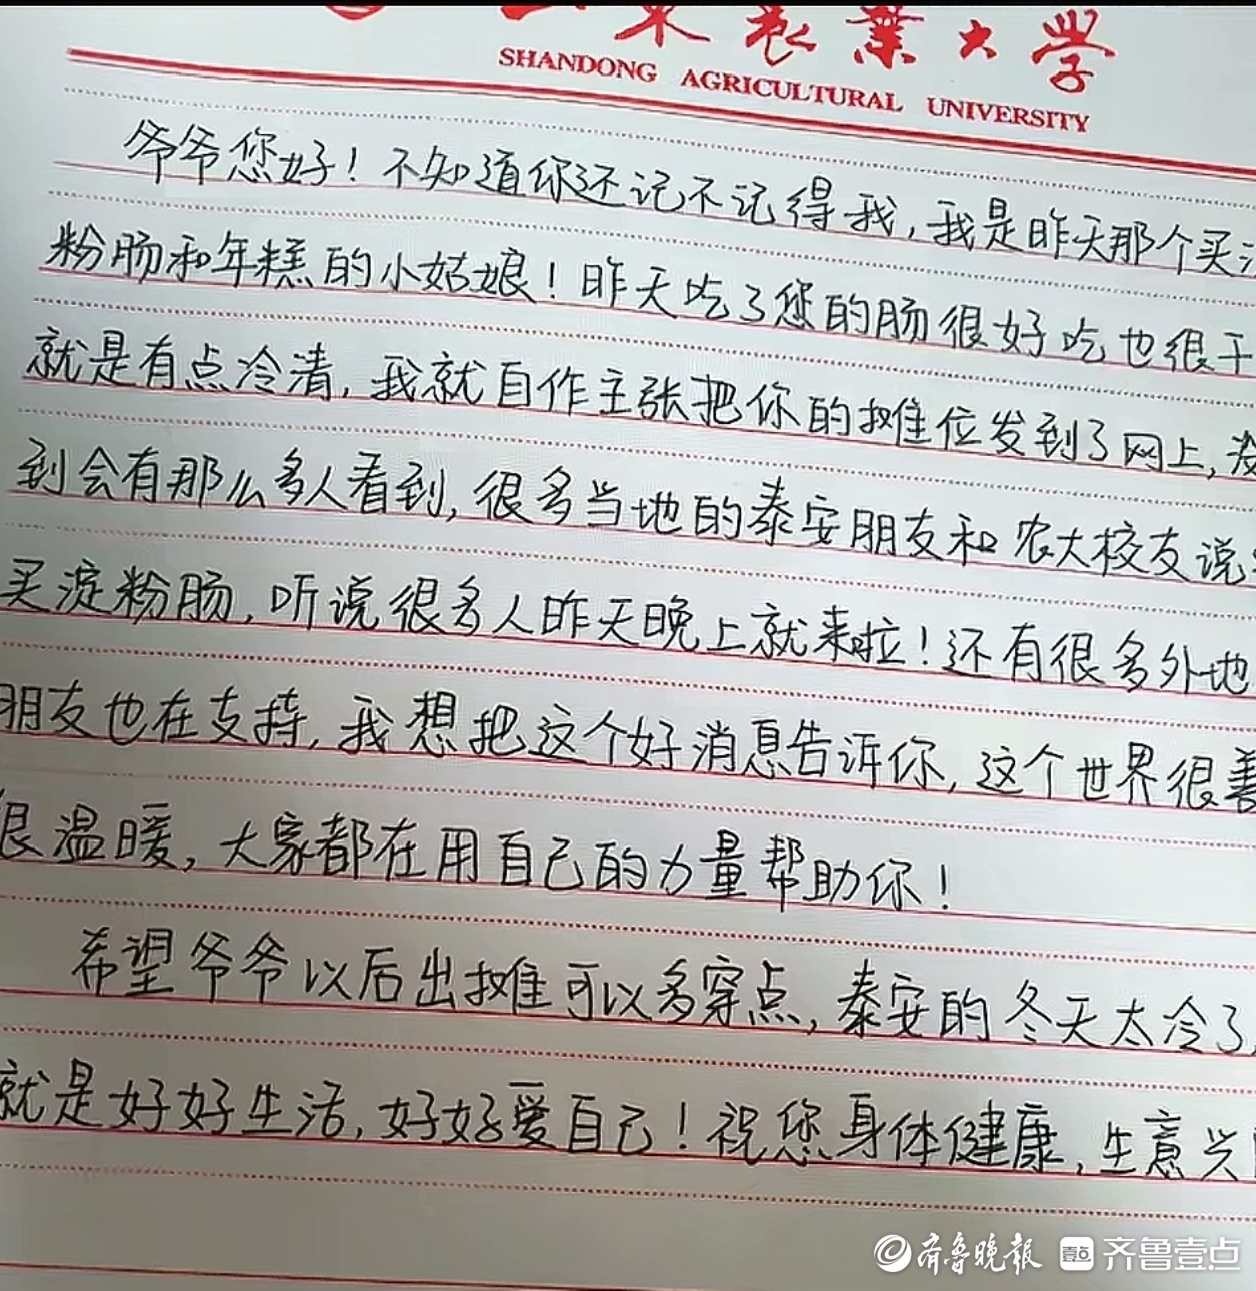 山东农业大学
SHANDONG AGRICULTURAL UNIVERSITY
爷爷您好！不知道你还记不记得我，我是昨天那个买
粉肠和年糕的小姑娘！昨天吃了您的肠很好吃也很干
就是有点冷清，我就自作主张把你的摊位发到了网上，没
到会有那么多人看到，很多当地的泰安朋友和农大校友说
买淀粉肠，听说很多人昨天晚上就来啦！还有很多外地
朋友也在支持，我想把这个好消息告诉你，这个世界很善
很温暖，大家都在用自己的力量帮助你！
希望爷爷以后出摊可以多穿点，泰安的冬天太冷了，
就是好好生活，好好爱自己！祝您身体健康，生意兴
齐鲁晚报 壹点 齐鲁壹点